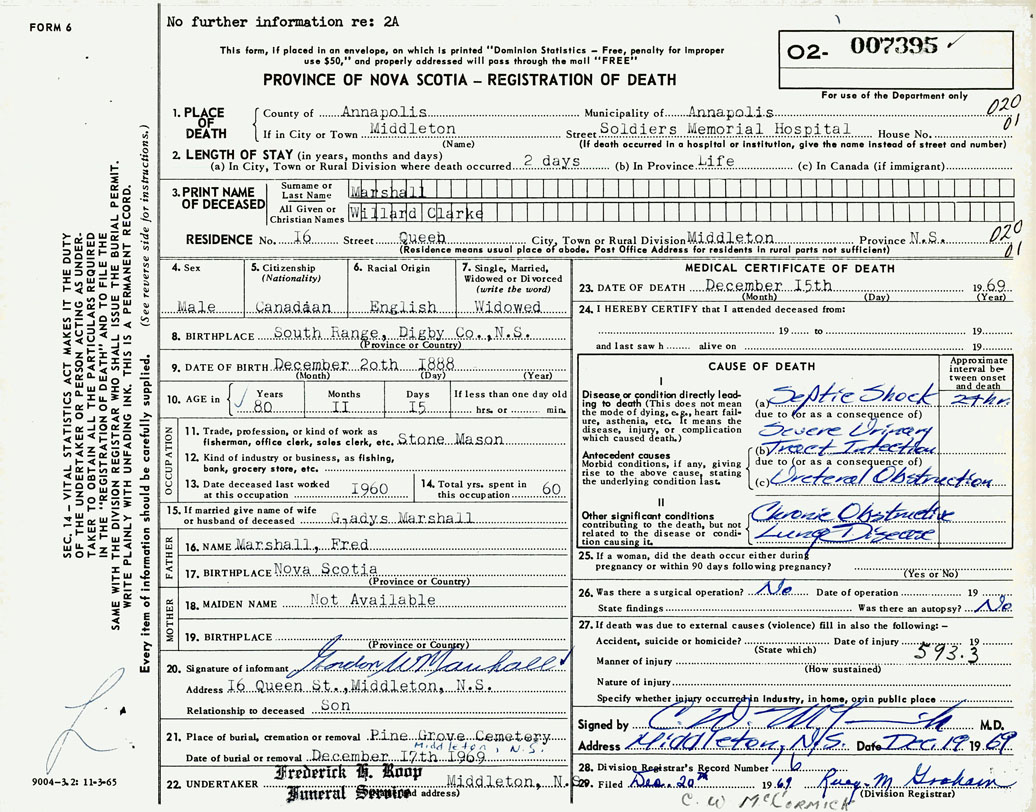 FORM 6
No further information re: 2A
This form, if placed in an envelope, on which is printed "Dominion Statistics – Free, penalty for improper
use $50," and properly addressed will pass through the mail "FREE"
PROVINCE OF NOVA SCOTIA – REGISTRATION OF DEATH
O2- 007395
For use of the Department only
020
01
1. PLACE OF DEATH
County of Annapolis Municipality of Annapolis
If in City or Town Middleton Street Soldiers Memorial Hospital House No.
(Name) (If death occurred in a hospital or institution, give the name instead of street and number)
2. LENGTH OF STAY (in years, months and days)
(a) In City, Town or Rural Division where death occurred 2 days (b) In Province Life (c) In Canada (if immigrant)
3. PRINT NAME OF DECEASED
Surname or Last Name Marshall
All Given or Christian Names Willard Clarke
RESIDENCE No. I6 Street Queen City, Town or Rural Division Middleton Province N.S.
(Residence means usual place of abode. Post Office Address for residents in rural parts not sufficient)
020
01
4. Sex Male
5. Citizenship (Nationality) Canadian
6. Racial Origin English
7. Single, Married, Widowed or Divorced (write the word) Widowed
8. BIRTHPLACE South Range, Digby Co., N.S.
(Province or Country)
9. DATE OF BIRTH December 2oth I888
(Month) (Day) (Year)
10. AGE in Years 80 Months II Days I5 If less than one day old hrs. or min.
OCCUPATION
11. Trade, profession, or kind of work as
fisherman, office clerk, sales clerk, etc. Stone Mason
12. Kind of industry or business, as fishing,
bank, grocery store, etc.
13. Date deceased last worked at this occupation I960
14. Total yrs. spent in this occupation 60
15. If married give name of wife
or husband of deceased Gladys Marshall
FATHER
16. NAME Marshall, Fred
17. BIRTHPLACE Nova Scotia
(Province or Country)
MOTHER
18. MAIDEN NAME Not Available
19. BIRTHPLACE
(Province or Country)
20. Signature of informant Gordon W Marshall
Address I6 Queen St., Middleton, N.S.
Relationship to deceased Son
21. Place of burial, cremation or removal Pine Grove Cemetery
Middleton, N.S.
Date of burial or removal December I7th I969
22. UNDERTAKER Frederick H. Roop Middleton, N.S.
Funeral Service
and address)
MEDICAL CERTIFICATE OF DEATH
23. DATE OF DEATH December I5th 19 69
(Month) (Day) (Year)
24. I HEREBY CERTIFY that I attended deceased from:
19 to 19
and last saw h alive on 19
CAUSE OF DEATH
Approximate interval between onset and death
I
Disease or condition directly leading to death (This does not mean the mode of dying, e.g., heart failure, asthenia, etc. It means the disease, injury, or complication which caused death.)
(a) Septic Shock 24 hr.
due to (or as a consequence of)
Severe Urinary
(b) Tract Infection
Antecedent causes
Morbid conditions, if any, giving rise to the above cause, stating the underlying condition last.
due to (or as a consequence of)
(c) Ureteral Obstruction
II
Other significant conditions contributing to the death, but not related to the disease or condition causing it.
Chronic Obstructive
Lung Disease
25. If a woman, did the death occur either during
pregnancy or within 90 days following pregnancy?
(Yes or No)
26. Was there a surgical operation? No Date of operation 19
State findings Was there an autopsy? No
27. If death was due to external causes (violence) fill in also the following: –
Accident, suicide or homicide? Date of injury 19
(State which) 593.3
Manner of injury
(How sustained)
Nature of injury
Specify whether injury occurred in Industry, in home, or in public place
Signed by M.D.
Address Middleton, N.S. Date Dec. 19 1969
28. Division Registrar's Record Number 76
29. Filed Dec. 20th 1969 M. Graham
(Division Registrar)
C. W McCORMICK
SEC. 14 – VITAL STATISTICS ACT MAKES IT THE DUTY
OF THE UNDERTAKER OR PERSON ACTING AS UNDER-
TAKER TO OBTAIN ALL THE PARTICULARS REQUIRED
IN THE "REGISTRATION OF DEATH" AND TO FILE THE
SAME WITH THE DIVISION REGISTRAR WHO SHALL ISSUE THE BURIAL PERMIT.
WRITE PLAINLY WITH UNFADING INK. THIS IS A PERMANENT RECORD.
Every item of information should be carefully supplied. (See reverse side for instructions.)
9004-3.2: 11-3-65